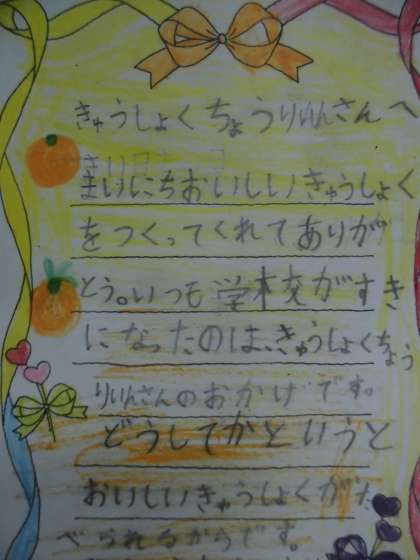 きゅうしょくちょうりいんさんへ
まいにちおいしいきゅうしょく
をつくってくれてありが
とう。いつも学校がすき
になったのは、きゅうしょくちょう
りいんさんのおかげです。
どうしてかというと
おいしいきゅうしょくがた
べられるからです。